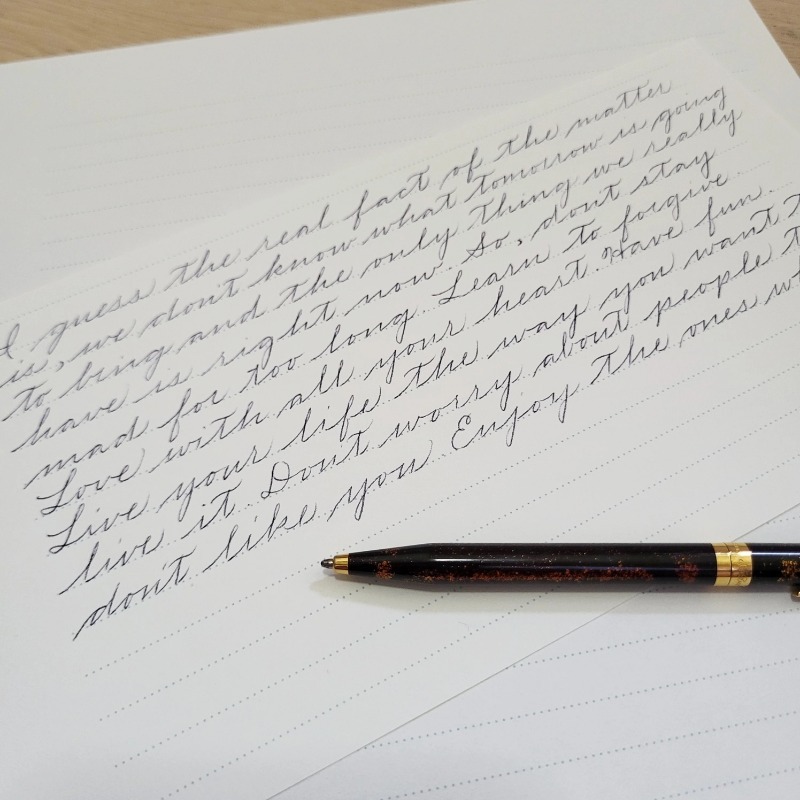 I guess the real fact of the matter
is, we don't know what tomorrow is going
to bing and the only thing we really
have is right now. So, don't stay
mad for too long. Learn to forgive.
Love with all your heart. Have fun.
Live your life the way you want
live it. Don't worry about people
don't like you. Enjoy the ones